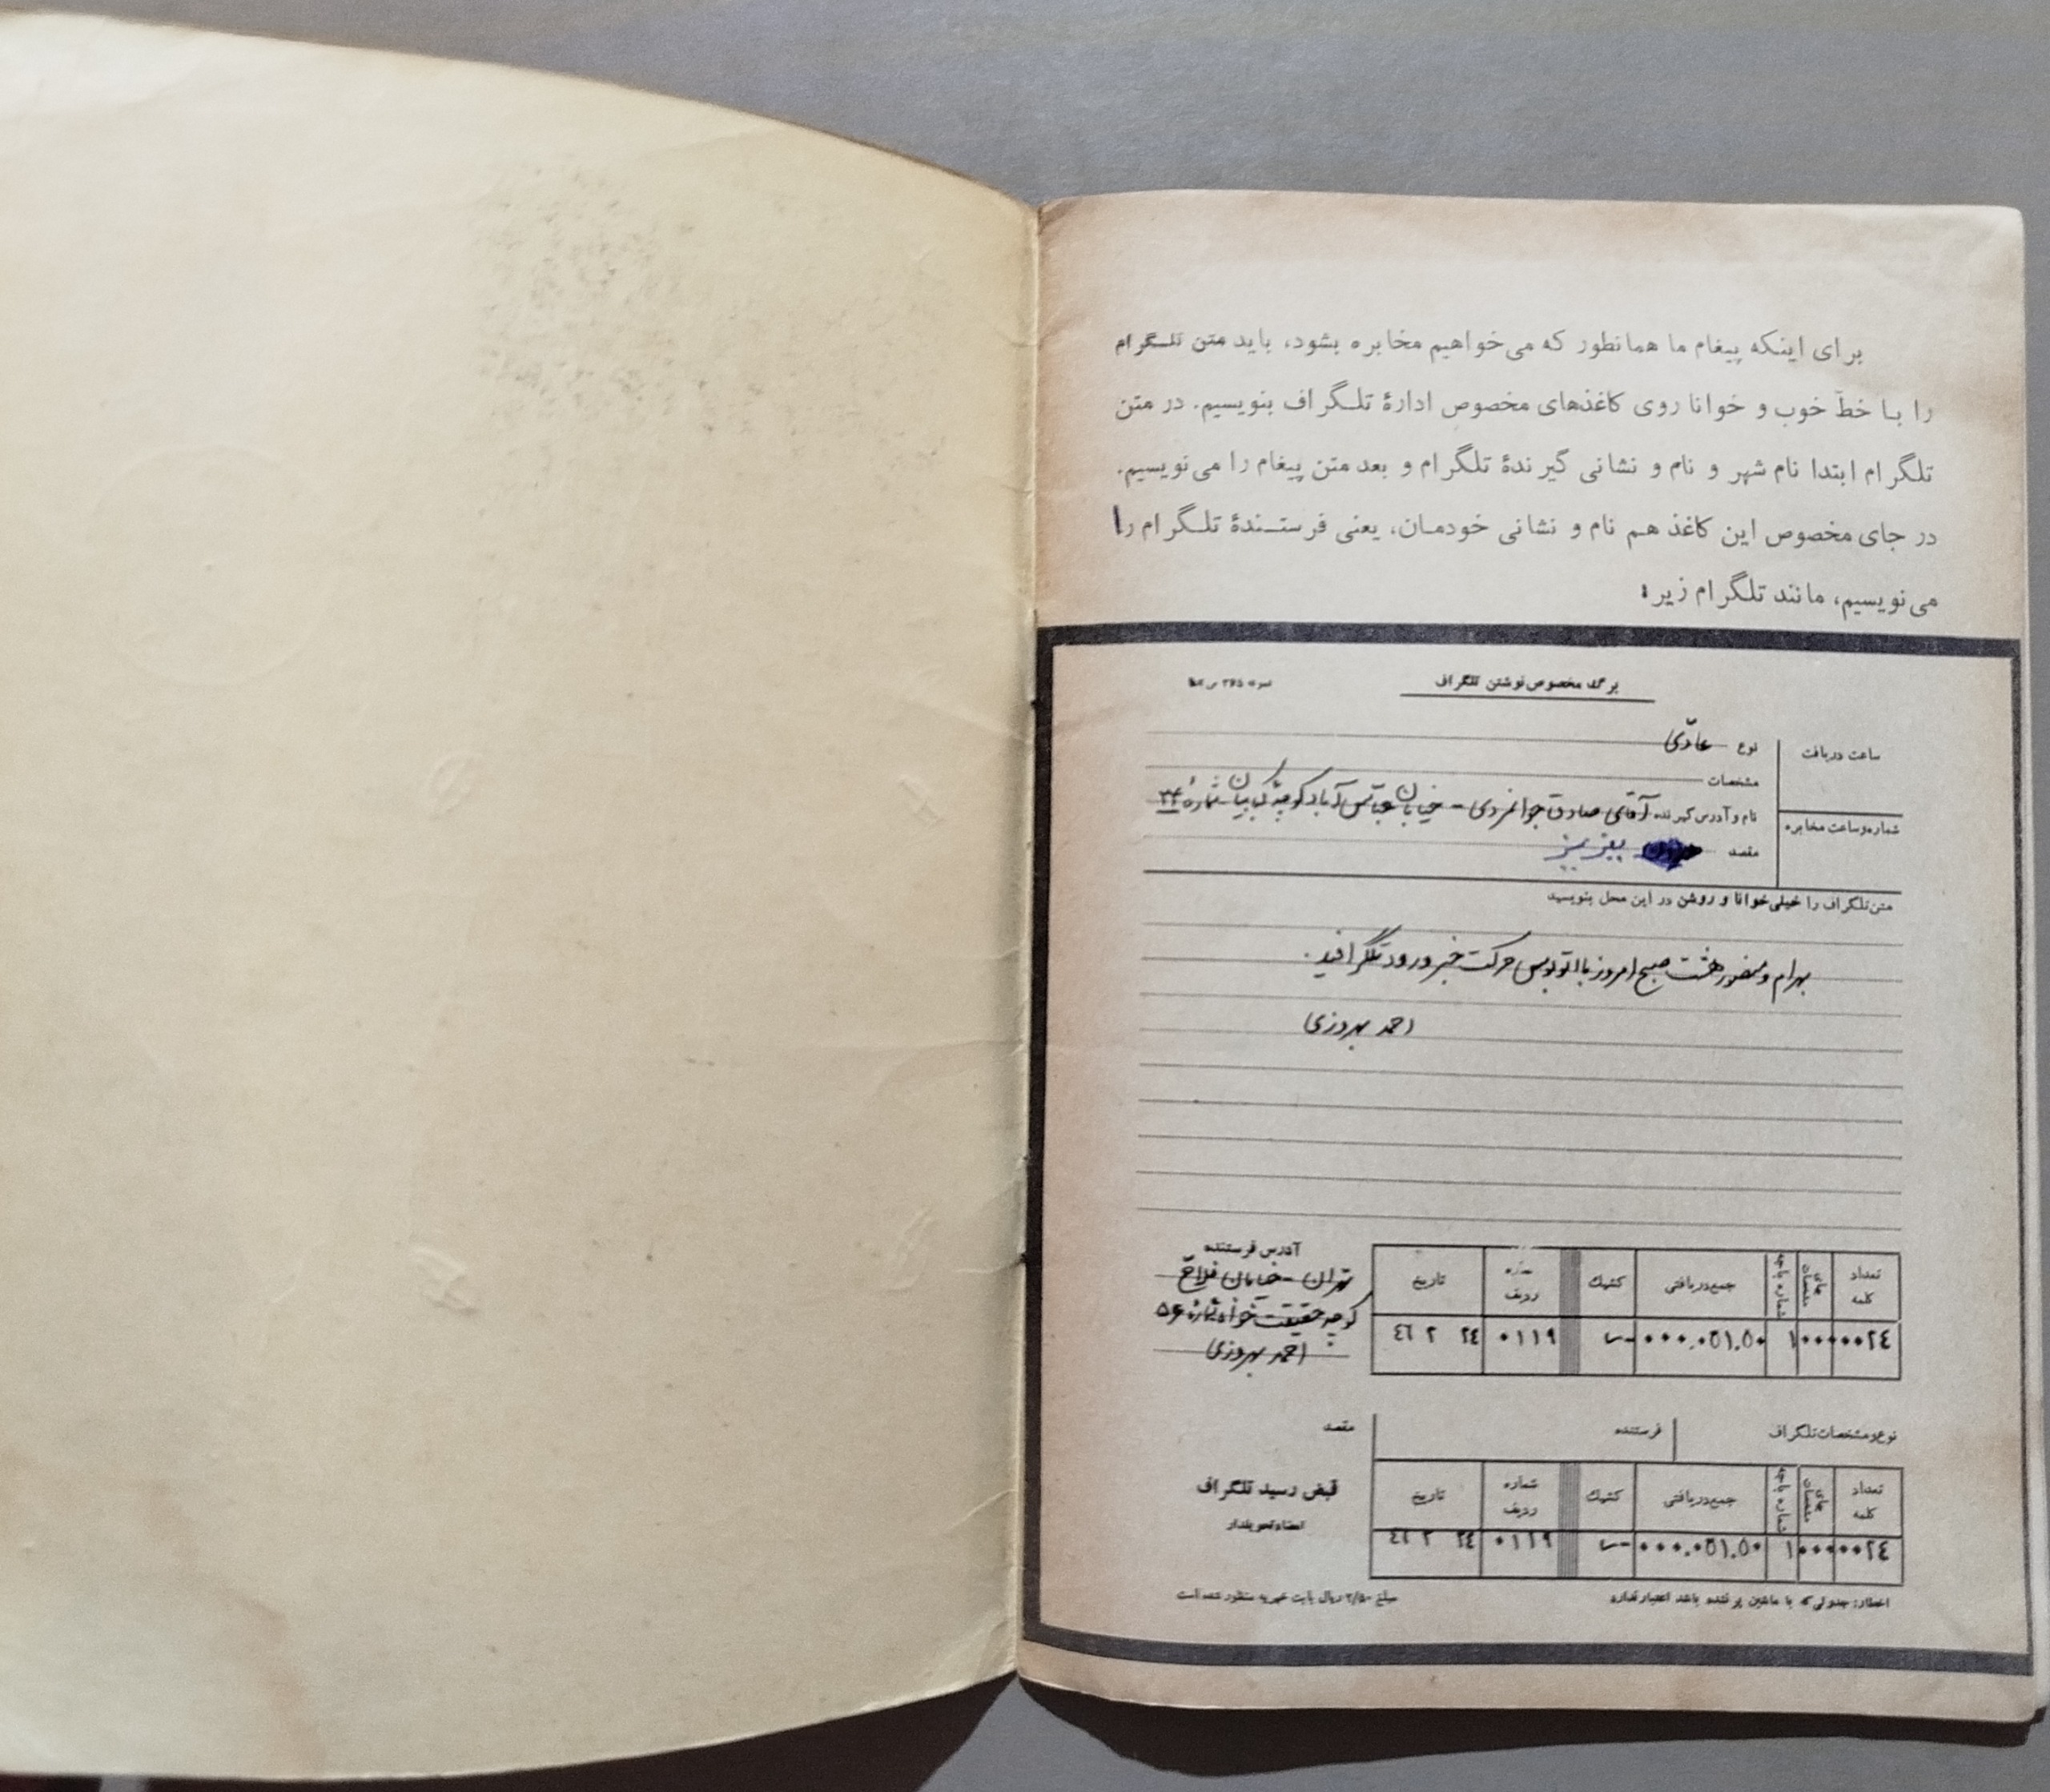 برای اینکه پیغام ما همانطور که می‌خواهیم مخابره بشود، باید متن تلگرام
را با خطّ خوب و خوانا روی کاغذهای مخصوص ادارهٔ تلگراف بنویسیم. در متن
تلگرام ابتدا نام شهر و نام و نشانی گیرندهٔ تلگرام و بعد متن پیغام را می‌نویسیم.
در جای مخصوص این کاغذ هم نام و نشانی خودمان، یعنی فرستندهٔ تلگرام را
می‌نویسیم، مانند تلگرام زیر:
برگ مخصوص نوشتن تلگراف
ساعت دریافت
نوع عادّی
مشخصات
نام و آدرس گیرنده آقای صادق جوانمردی - خیابان عبّاس‌آباد کوچهٔ شمارهٔ ۳۴
شماره و ساعت مخابره
مقصد
متن تلگراف را خیلی خوانا و روشن در این محل بنویسید
بهرام و منصور هشت صبح امروز با اتوبوس حرکت خبر ورود تلگرافید.
احمد بهروزی
آدرس فرستنده
تهران - خیابان فلاح
کوچه حقیقت‌خواه شمارهٔ ۵۶
احمد بهروزی
تعداد کلمه
شماره باجه
جمع دریافتی
کشیک
ردیف
تاریخ
۰۰۲٤
۱
۰۱۱۹
۲٤ ۲ ٤٦
نوع و مشخصات تلگراف
فرستنده
مقصد
تعداد کلمه
شماره باجه
جمع دریافتی
کشیک
شماره ردیف
تاریخ
قبض رسید تلگراف
امضاء تحویلدار
۰۰۲٤
۱
۰۱۱۹
۲٤ ۲ ٤٦
اخطار: جدولی که با ماشین پر نشده باشد اعتبار ندارد
مبلغ ۲/۵۰ ریال بابت خیریه منظور شده است